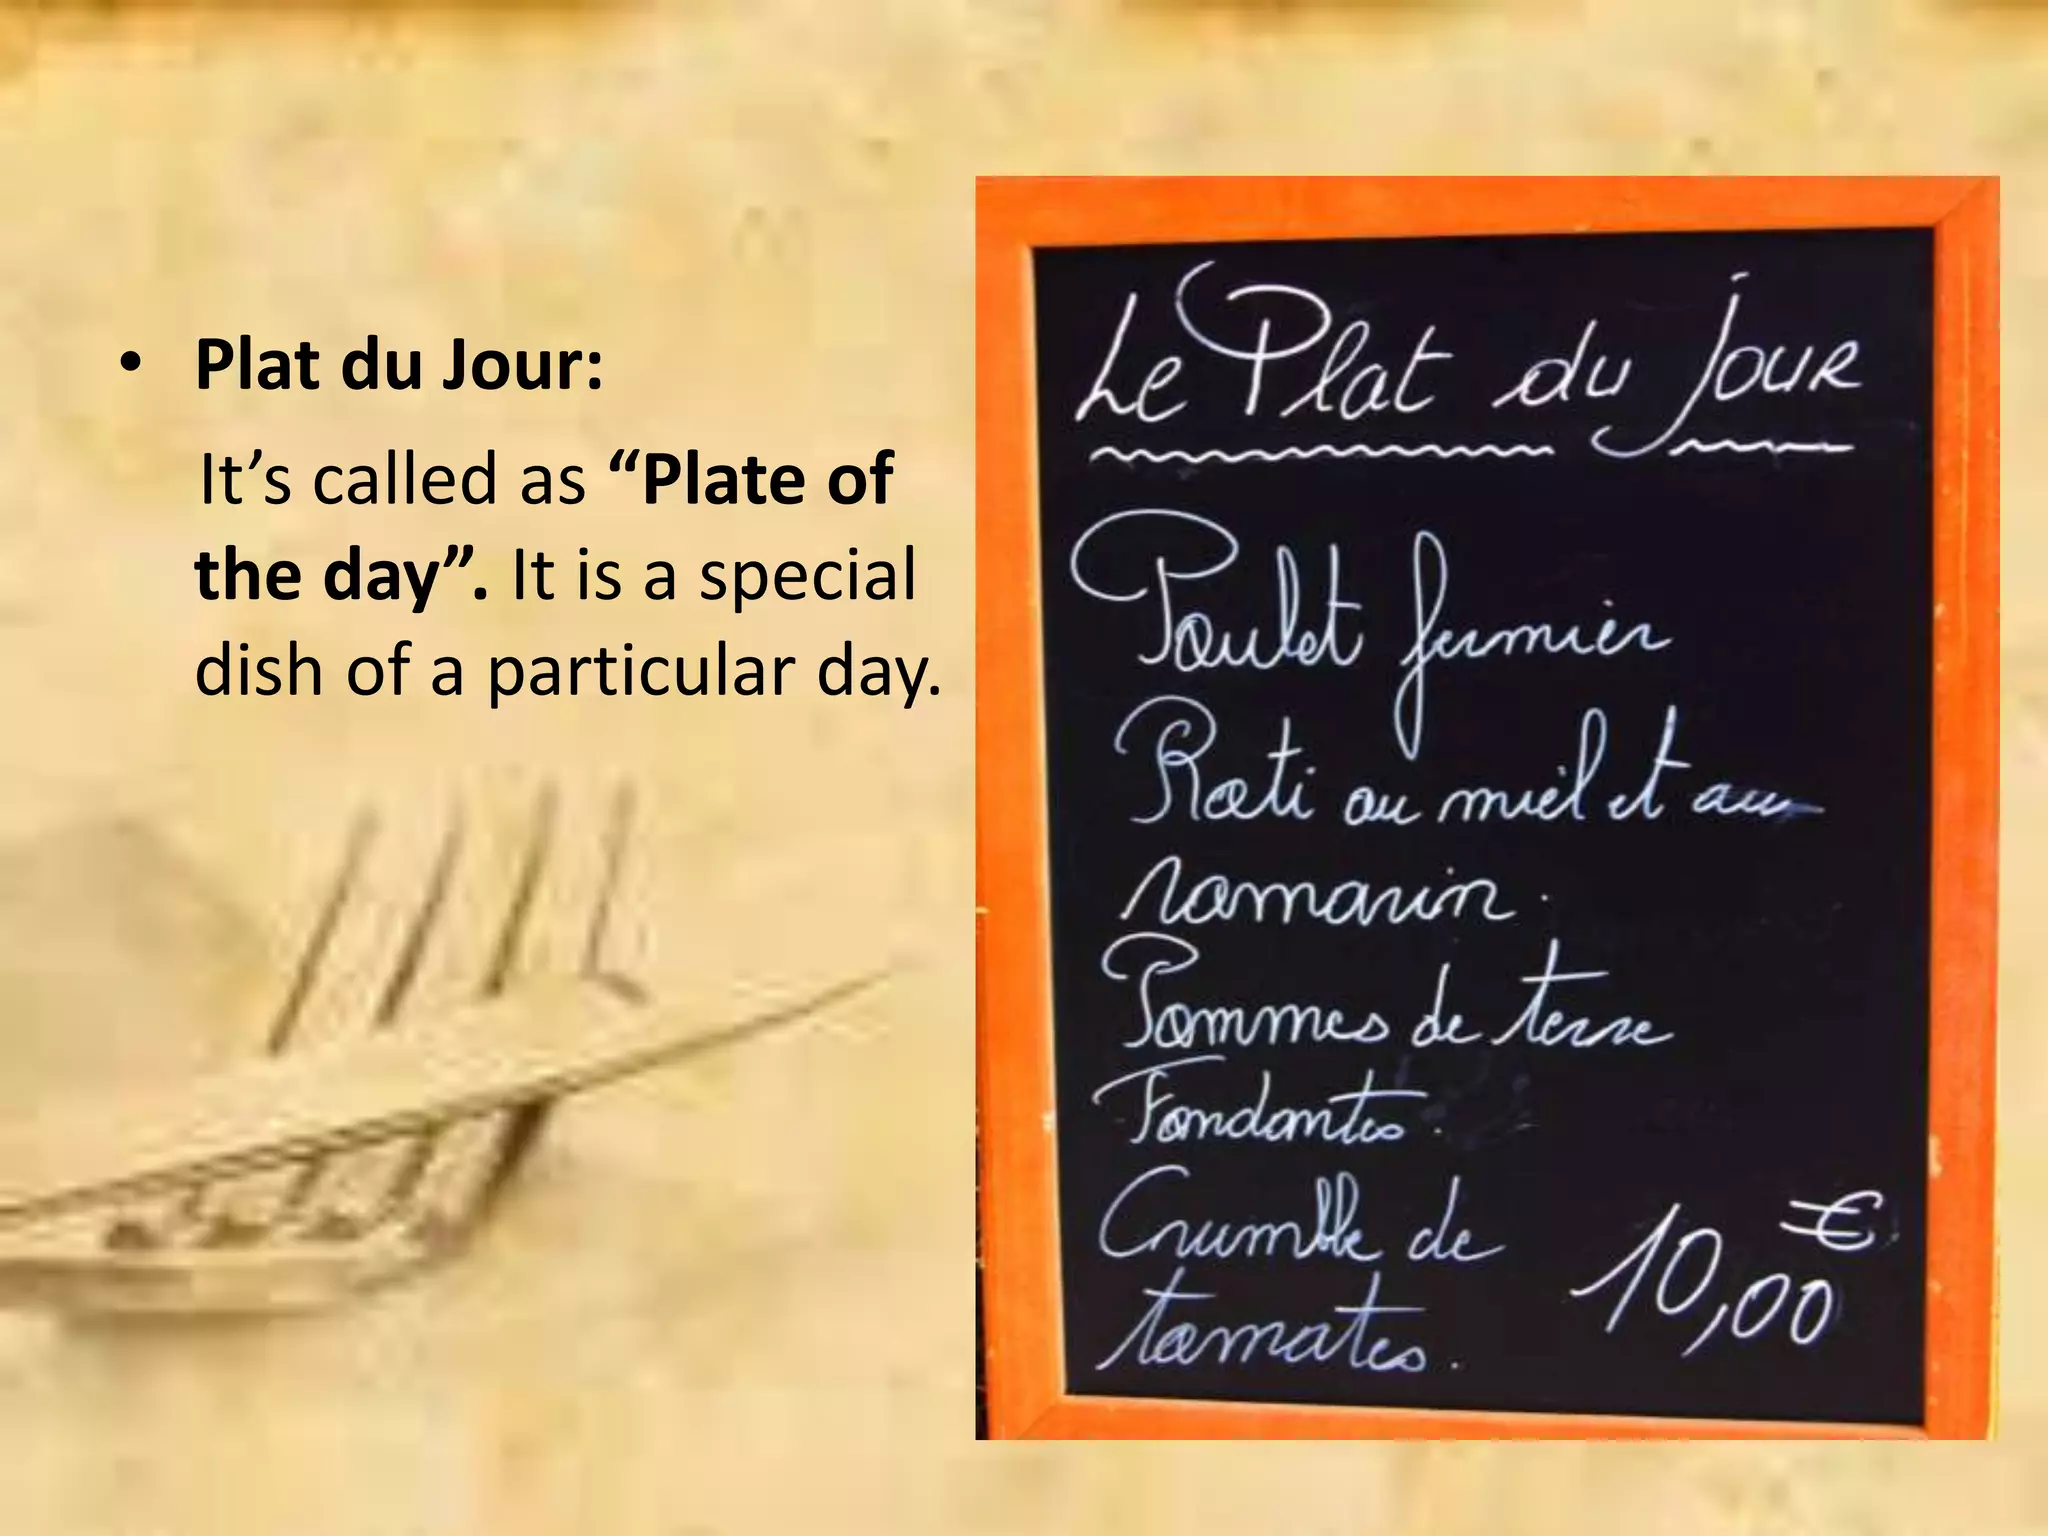 • Plat du Jour:
It’s called as “Plate of
the day”. It is a special
dish of a particular day.
Le Plat du jour
Poulet fermier
Roti au miel et au
romarin.
Pommes de terre
Fondantes.
Crumble de
tomates.
10,00 €